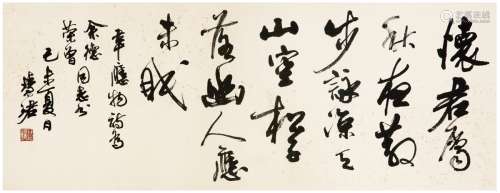 懷君屬
秋夜散
步詠涼天
山空松子
落幽人應
未眠
韋應物詩為
同志
己未夏日